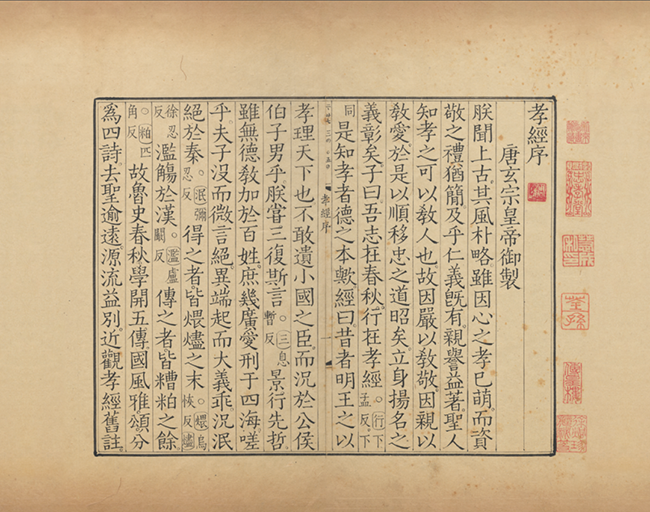 孝經序
唐玄宗皇帝御製
朕聞上古其風朴略雖因心之孝已萌而資
敬之禮猶簡及乎仁義旣有親譽益著聖人
知孝之可以教人也故因嚴以教敬因親以
教愛於是以順移忠之道昭矣立身揚名之
義彰矣子曰吾志在春秋行在孝經○行下孟反下
同是知孝者德之本歟經曰昔者明王之以
孝經序
一
孝理天下也不敢遺小國之臣而況於公侯
伯子男乎朕嘗三復斯言○三息暫反景行先哲
雖無德教加於百姓庶幾廣愛刑于四海嗟
乎夫子沒而微言絕異端起而大義乖況泯
絕於秦○泯彌忍反得之者皆煨燼之末○煨烏恢反燼
徐忍反濫觴於漢○濫盧闞反傳之者皆糟粕之餘
○粕匹角反故魯史春秋學開五傳國風雅頌分
爲四詩去聖逾遠源流益別近觀孝經舊註